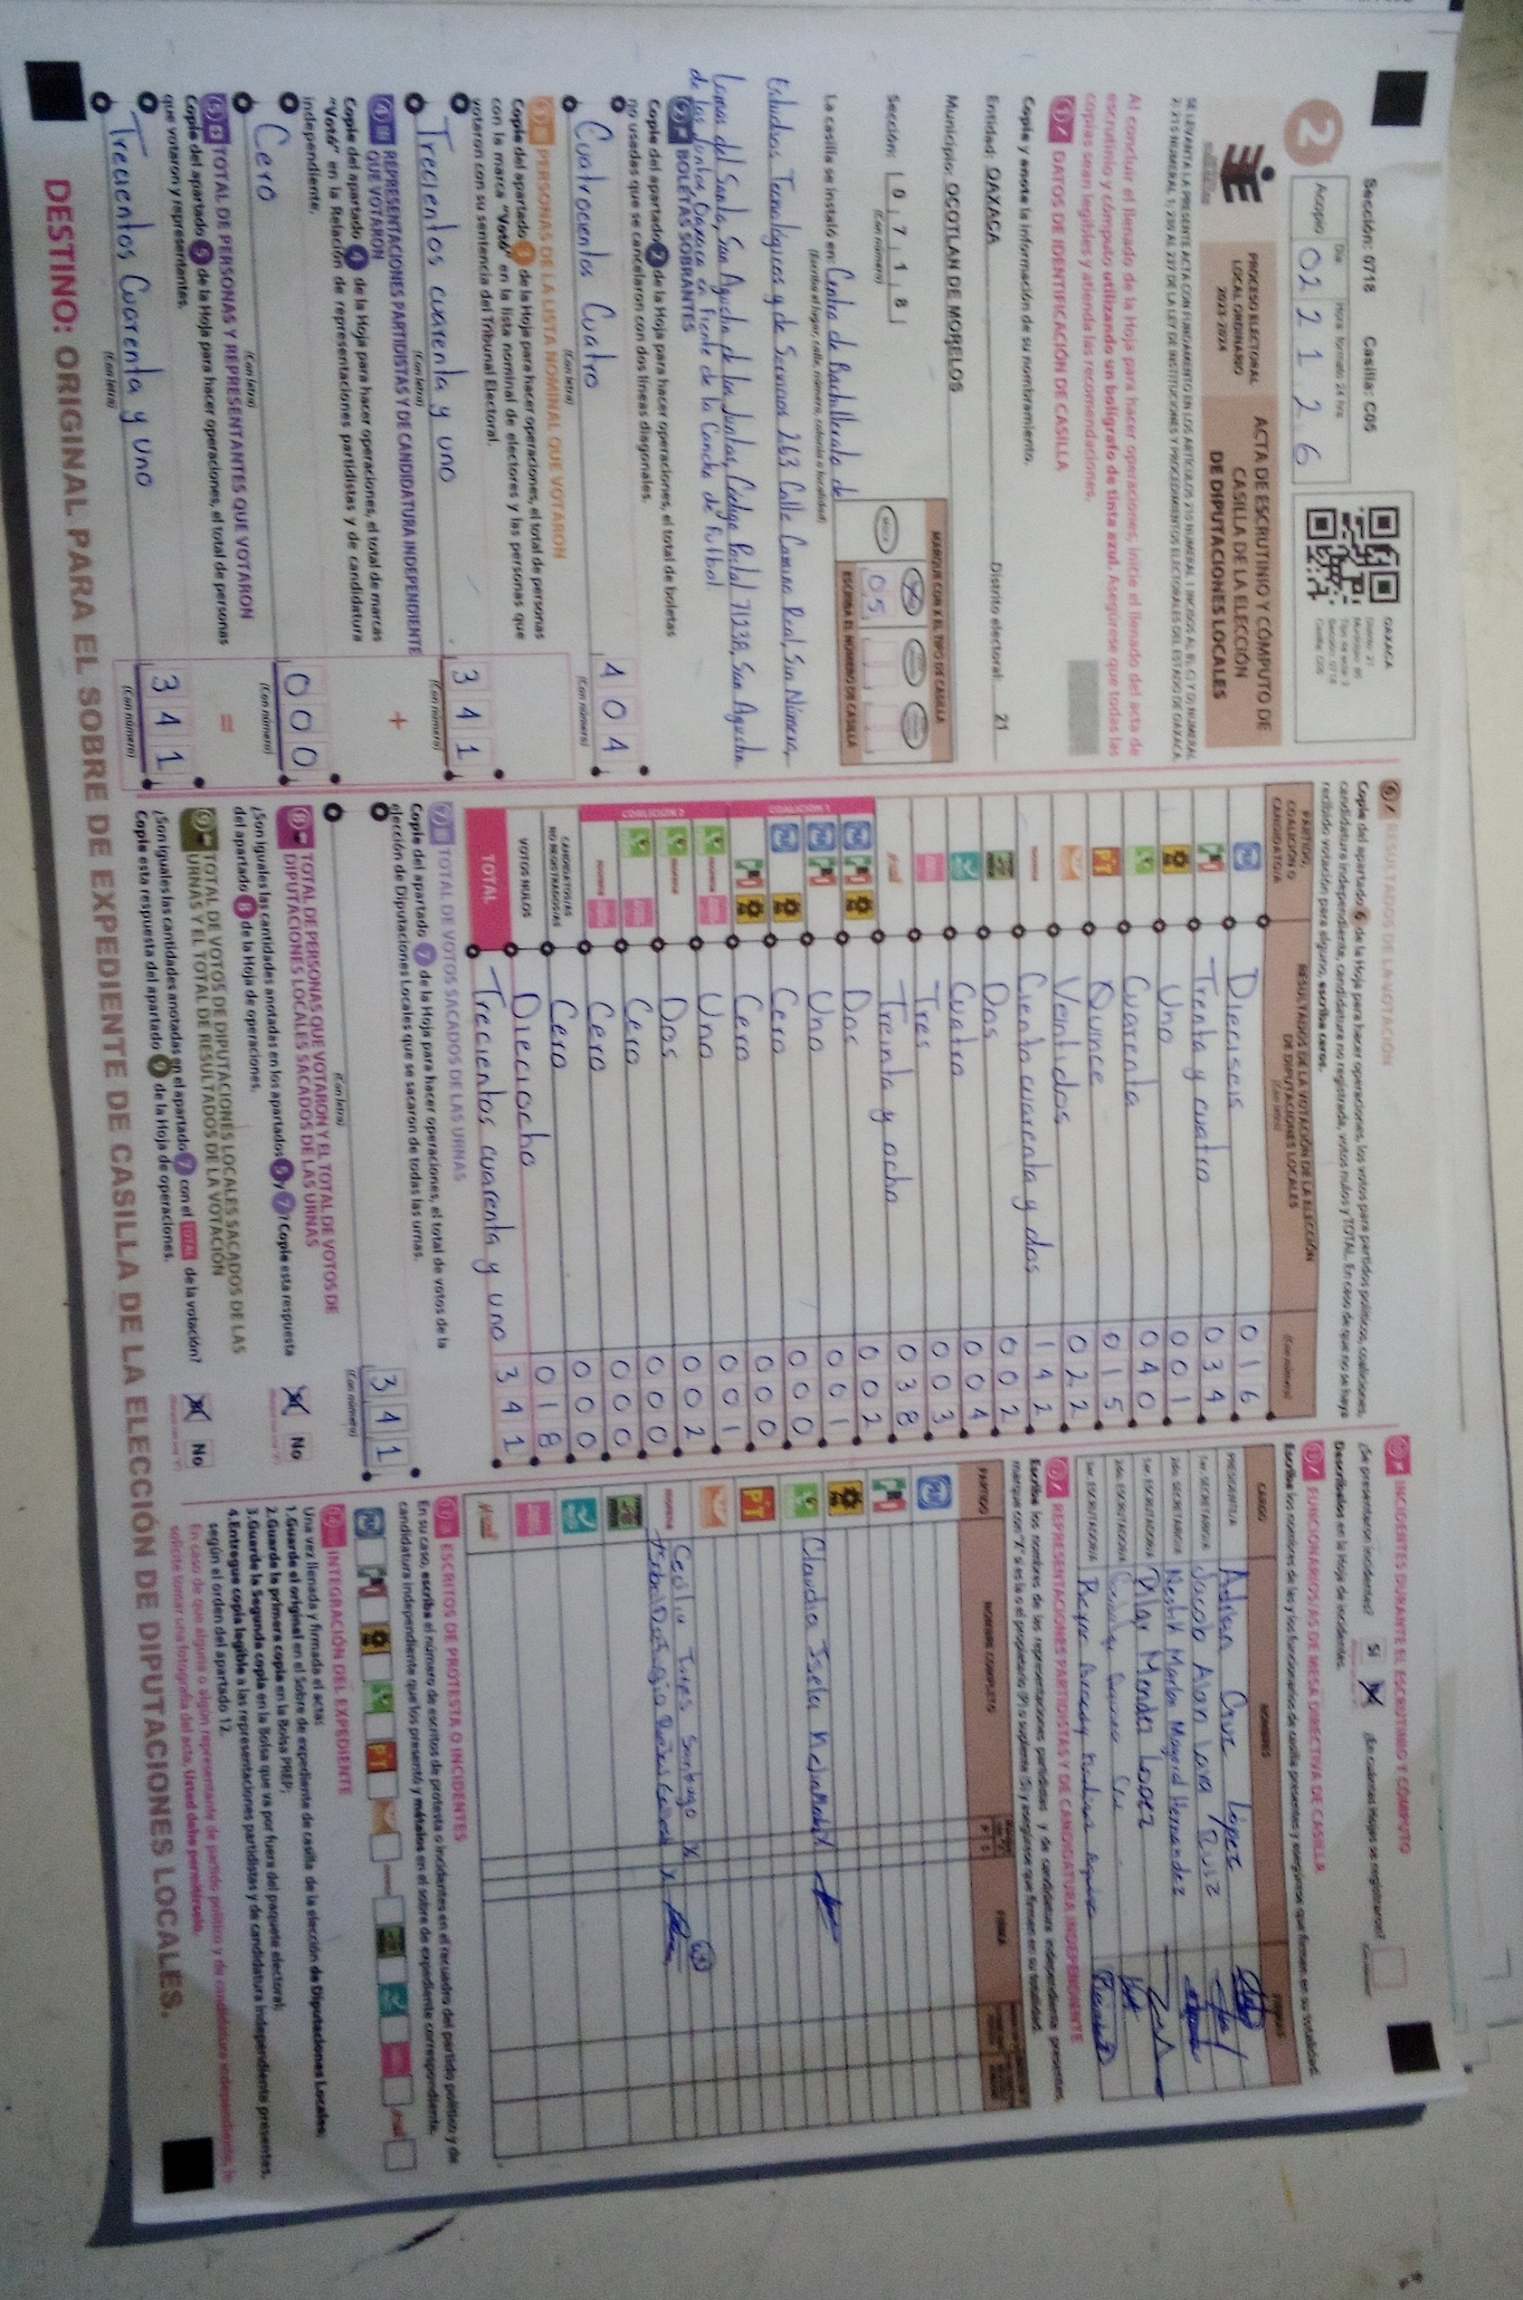 Sección: 0718 Casilla: C05
2
Acopio
Día
Hora formato 24 hrs
02 21 26
OAXACA
PROCESO ELECTORAL
LOCAL ORDINARIO
2023-2024
ACTA DE ESCRUTINIO Y CÓMPUTO DE
CASILLA DE LA ELECCIÓN
DE DIPUTACIONES LOCALES
Al concluir el llenado de la Hoja para hacer operaciones, inicie el llenado del acta de
escrutinio y cómputo utilizando un bolígrafo de tinta azul. Asegúrese que todas las
copias sean legibles y atienda las recomendaciones.
1 DATOS DE IDENTIFICACIÓN DE CASILLA
Copie y anote la información de su nombramiento.
Entidad: OAXACA Distrito electoral: 21
Municipio: OCOTLAN DE MORELOS
Sección: 0 7 1 8
(Con número)
MARQUE CON X EL TIPO DE CASILLA
ESCRIBA EL NÚMERO DE CASILLA
05
La casilla se instaló en: Centro de Bachillerato de
(Escriba el lugar, calle, número, colonia o localidad)
Estudios Tecnológicos y de Servicios 263 Calle Camino Real, Sin Número,
Lomas del Santo, San Agustín de las Juntas, Código Postal 71238, San Agustín
de las Juntas, Oaxaca en frente de la Cancha de Futbol
2 BOLETAS SOBRANTES
Copie del apartado 2 de la Hoja para hacer operaciones, el total de boletas
no usadas que se cancelaron con dos líneas diagonales.
Cuatrocientos Cuatro 404
(Con letra) (Con número)
3 PERSONAS DE LA LISTA NOMINAL QUE VOTARON
Copie del apartado 3 de la Hoja para hacer operaciones, el total de personas
con la marca "Votó" en la lista nominal de electores y las personas que
votaron con su sentencia del Tribunal Electoral.
Trecientos cuarenta y uno 341
(Con letra) (Con número)
4 REPRESENTACIONES PARTIDISTAS Y DE CANDIDATURA INDEPENDIENTE
QUE VOTARON
+
Copie del apartado 4 de la Hoja para hacer operaciones, el total de marcas
"Votó" en la Relación de representaciones partidistas y de candidatura
independiente.
Cero 000
(Con letra) (Con número)
5 TOTAL DE PERSONAS Y REPRESENTANTES QUE VOTARON
=
Copie del apartado 5 de la Hoja para hacer operaciones, el total de personas
que votaron y representantes.
Trecientos Cuarenta y uno 341
(Con letra) (Con número)
6 RESULTADOS DE LA VOTACIÓN
Copie del apartado 6 de la Hoja para hacer operaciones, los votos para partidos políticos, coaliciones,
candidatura independiente, candidatura no registrada, votos nulos y TOTAL. En caso de que no se haya
recibido votación para alguno, escriba ceros.
PARTIDO,
COALICIÓN O
CANDIDATO/A
RESULTADOS DE LA VOTACIÓN DE LA ELECCIÓN
DE DIPUTACIONES LOCALES
(Con letra)
(Con número)
PAN Dieciseis 016
PRI Trenta y cuatro 034
Uno 001
Cuarenta 040
PT Quince 015
Veintidos 022
morena Ciento cuarenta y dos 142
Dos 002
Cuatro 004
Tres 003
Treinta y ocho 038
COALICIÓN 1
Dos 002
Uno 001
Cero 000
Cero 000
COALICIÓN 2
Uno 001
Dos 002
Cero 000
Cero 000
CANDIDATOS/AS
NO REGISTRADOS/AS Cero 000
VOTOS NULOS Dieciocho 018
TOTAL Trecientos cuarenta y uno 341
7 TOTAL DE VOTOS SACADOS DE LAS URNAS
Copie del apartado 7 de la Hoja para hacer operaciones, el total de votos de la
elección de Diputaciones Locales que se sacaron de todas las urnas.
341
(Con letra) (Con número)
8 TOTAL DE PERSONAS QUE VOTARON Y EL TOTAL DE VOTOS DE
DIPUTACIONES LOCALES SACADOS DE LAS URNAS
¿Son iguales las cantidades anotadas en los apartados 5 y 7? Copie esta respuesta
del apartado 8 de la Hoja de operaciones.
No
9 TOTAL DE VOTOS DE DIPUTACIONES LOCALES SACADOS DE LAS
URNAS Y EL TOTAL DE RESULTADOS DE LA VOTACIÓN
¿Son iguales las cantidades anotadas en el apartado 7 con el TOTAL de la votación?
Copie esta respuesta del apartado 9 de la Hoja de operaciones.
No
10 INCIDENTES DURANTE EL ESCRUTINIO Y CÓMPUTO
¿Se presentaron incidentes? Sí ¿En cuántas Hojas se registraron?
Descríbalos en la Hoja de incidentes.
11 FUNCIONARIOS/AS DE MESA DIRECTIVA DE CASILLA
Escriba los nombres de las y los funcionarios de casilla presentes y asegúrese que firmen en su totalidad.
CARGO NOMBRES FIRMAS
PRESIDENTE/A Adrian Cruz López
1er. SECRETARIO/A Jacob Alan Lara Ruiz
2do. SECRETARIO/A Neftli Marba Mayord Hernandez
1er. ESCRUTADOR/A Pilar Mendez Lopez
2do. ESCRUTADOR/A
3er. ESCRUTADOR/A Reyna Aracely
12 REPRESENTACIONES PARTIDISTAS Y DE CANDIDATURA INDEPENDIENTE
Escriba los nombres de las representaciones partidistas y de candidatura independiente presentes,
marque con "X" si es la o el propietario (P) o suplente (S) y asegúrese que firmen en su totalidad.
PARTIDO NOMBRE COMPLETO P S FIRMA
Claudia Isela
Cecilia Ines Santiago X
X
13 ESCRITOS DE PROTESTA O INCIDENTES
En su caso, escriba el número de escritos de protesta o incidentes en el recuadro del partido político y de
candidatura independiente que los presentó y métalos en el sobre de expediente correspondiente.
14 INTEGRACIÓN DEL EXPEDIENTE
Una vez llenada y firmada el acta:
1. Guarde el original en el Sobre de expediente de casilla de la elección de Diputaciones Locales.
2. Guarde la primera copia en la Bolsa PREP;
3. Guarde la Segunda copia en la Bolsa que va por fuera del paquete electoral;
4. Entregue copia legible a las representaciones partidistas y de candidatura independiente presentes,
según el orden del apartado 12.
En caso de que alguna o algún representante de partido político y de candidatura independiente, le
solicite tomar una fotografía del acta, Usted debe permitírselo.
DESTINO: ORIGINAL PARA EL SOBRE DE EXPEDIENTE DE CASILLA DE LA ELECCIÓN DE DIPUTACIONES LOCALES.